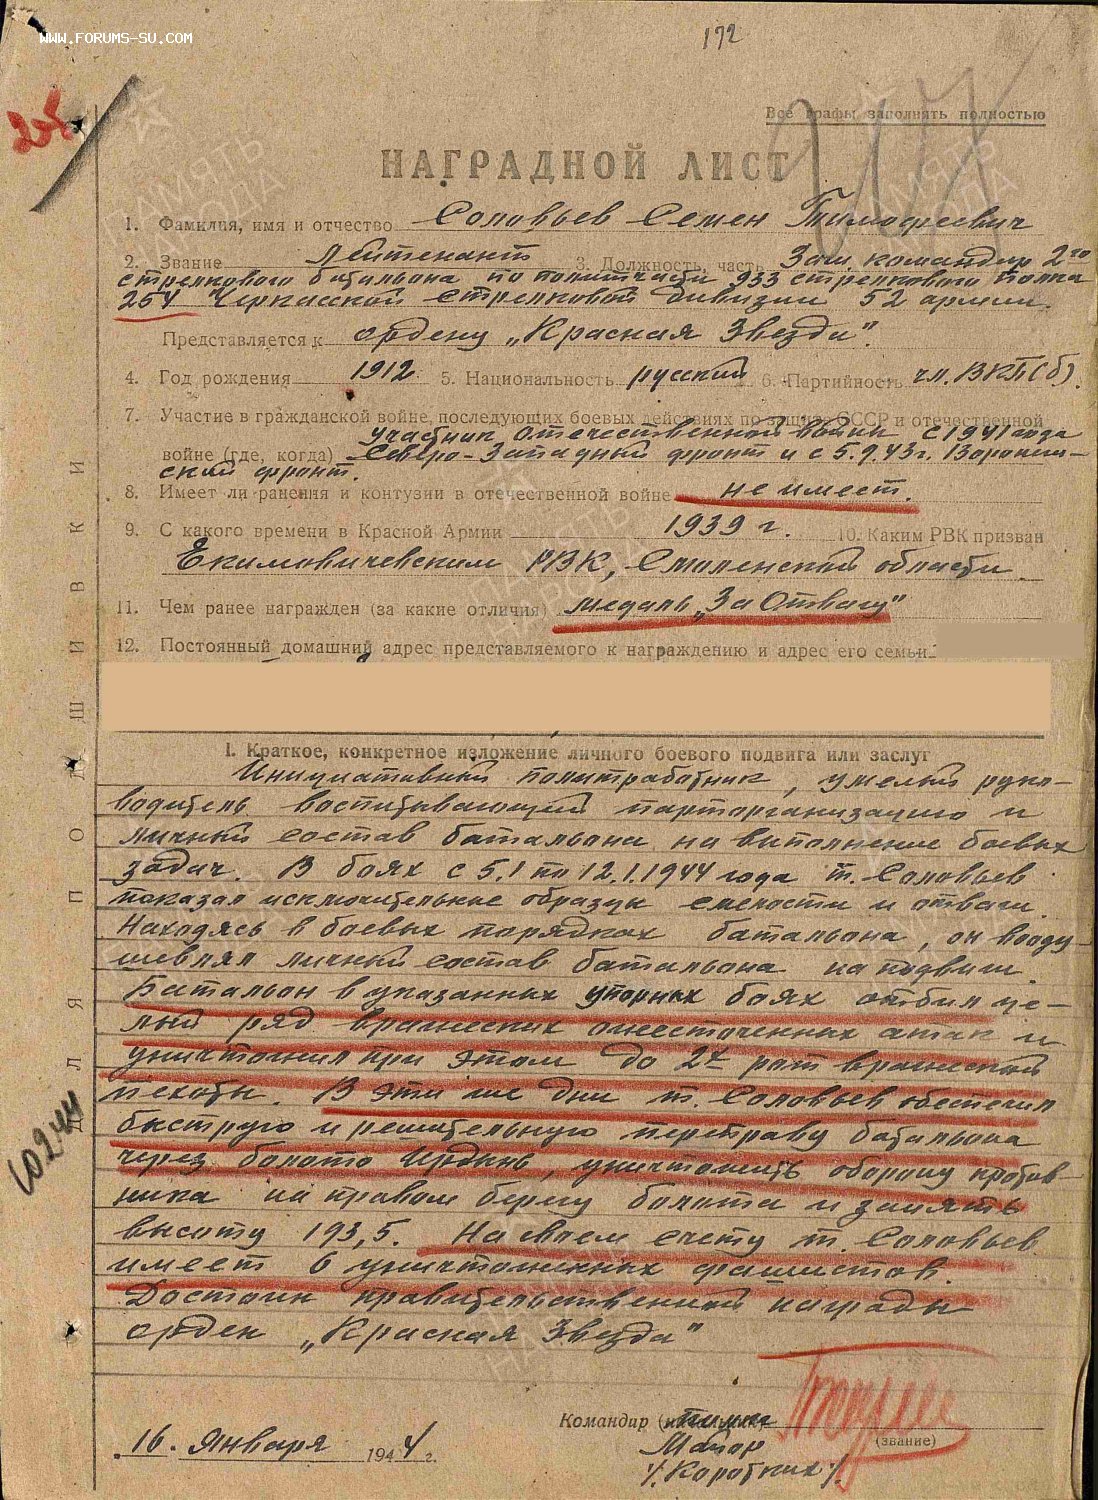 WWW.FORUMS-SU.COM
172
205
207
Все графы заполнять полностью
НАГРАДНОЙ ЛИСТ
1. Фамилия, имя и отчество Соловьев Семен Тимофеевич
2. Звание Лейтенант 3. Должность, часть Зам. командир 2го
стрелкового батальона по политчасти 933 стрелкового полка
254 Черкасской стрелковой дивизии 52 армии.
Представляется к ордену „Красная Звезда".
4. Год рождения 1912 5. Национальность русский 6. Партийность чл. ВКП(б).
7. Участие в гражданской войне, последующих боевых действиях по защите СССР и отечественной
участник Отечественной войны с 1941 года
войне (где, когда) Северо-Западный фронт и с 5.9.43г. Воронеж-
ский фронт.
8. Имеет ли ранения и контузии в отечественной войне не имеет.
9. С какого времени в Красной Армии 1939 г. 10. Каким РВК призван
Екимовичевским РВК, Смоленской области
11. Чем ранее награжден (за какие отличия) медаль „За Отвагу"
12. Постоянный домашний адрес представляемого к награждению и адрес его семьи
I. Краткое, конкретное изложение личного боевого подвига или заслуг
Инициативный политработник, умелый руко-
водитель воспитывающий парторганизацию и
личный состав батальона на выполнение боевых
задач. В боях с 5.1 по 12.1.1944 года т. Соловьев
показал исключительные образцы смелости и отваги.
Находясь в боевых порядках батальона, он вооду-
шевлял личный состав батальона на подвиги.
Батальон в указанных упорных боях отбил це-
лый ряд вражеских ожесточенных атак и
уничтожил при этом до 2х рот вражеской
пехоты. В эти же дни т. Соловьев обеспечил
быструю и решительную переправу батальона
через болото Ирдынь, уничтожить оборону против-
ника на правом берегу болота и занять
высоту 193,5. На своем счету т. Соловьев
имеет 6 уничтоженных фашистов.
Достоин правительственной награды
орден „Красная Звезда"
Командир (начальник)
Майор (звание)
/Коротких/.
16. Января 1944 г.
ДЛЯ ПОДШИВКИ
10244
ПАМЯТЬ НАРОДА